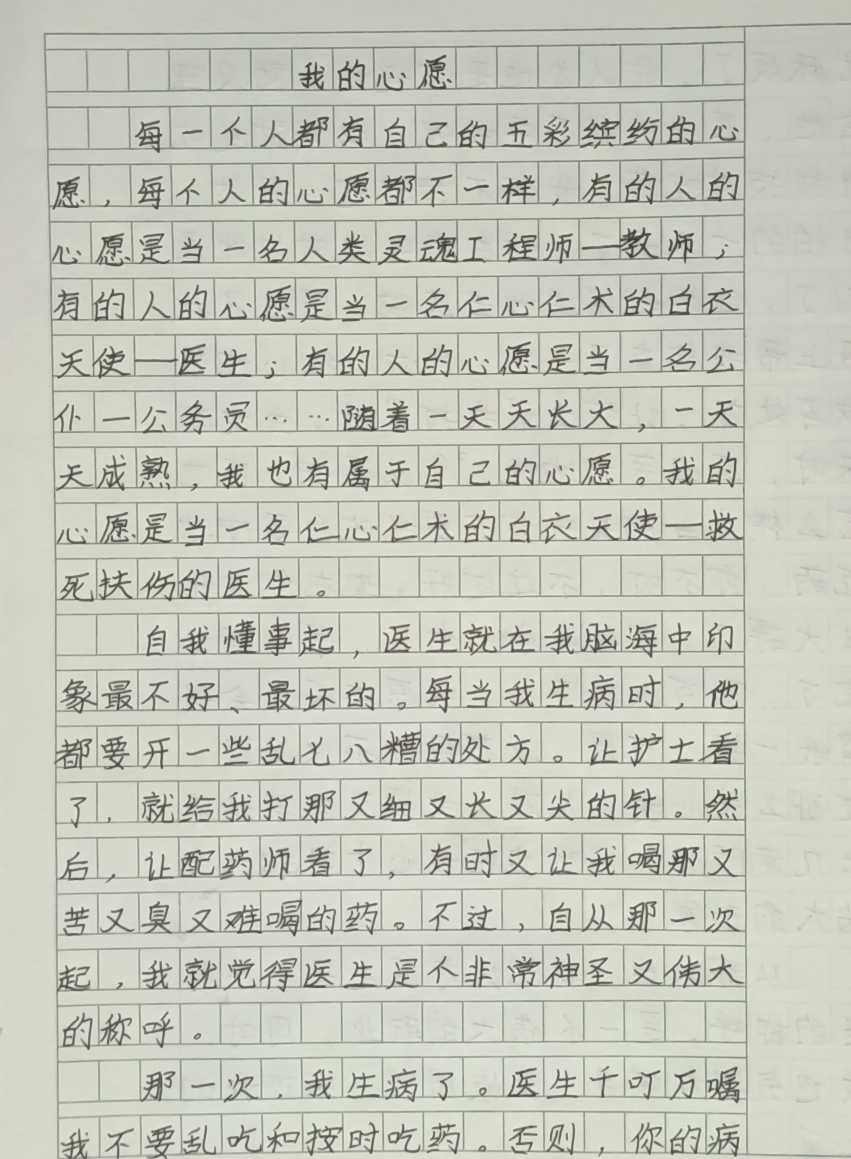 我的心愿
每一个人都有自己的五彩缤纷的心
愿，每个人的心愿都不一样，有的人的
心愿是当一名人类灵魂工程师—教师；
有的人的心愿是当一名仁心仁术的白衣
天使—医生；有的人的心愿是当一名公
仆—公务员……随着一天天长大，一天
天成熟，我也有属于自己的心愿。我的
心愿是当一名仁心仁术的白衣天使—救
死扶伤的医生。
自我懂事起，医生就在我脑海中印
象最不好、最坏的。每当我生病时，他
都要开一些乱七八糟的处方。让护士看
了，就给我打那又细又长又尖的针。然
后，让配药师看了，有时又让我喝那又
苦又臭又难喝的药。不过，自从那一次
起，我就觉得医生是个非常神圣又伟大
的称呼。
那一次，我生病了。医生千叮万嘱
我不要乱吃和按时吃药。否则，你的病